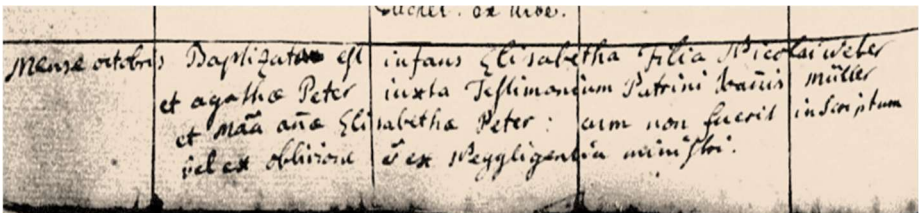 Bucher. ex urbe.
Mense octobris Baptizata est infans Elisabetha Filia Nicolai Weber
et agathæ Peter iuxta Testimonium Patrini Joannis Müller
et Mãa añæ Elisabethæ Peter: cum non fuerit inScriptum
vel ex oblivione ẽ ex Neggligentia ministri.